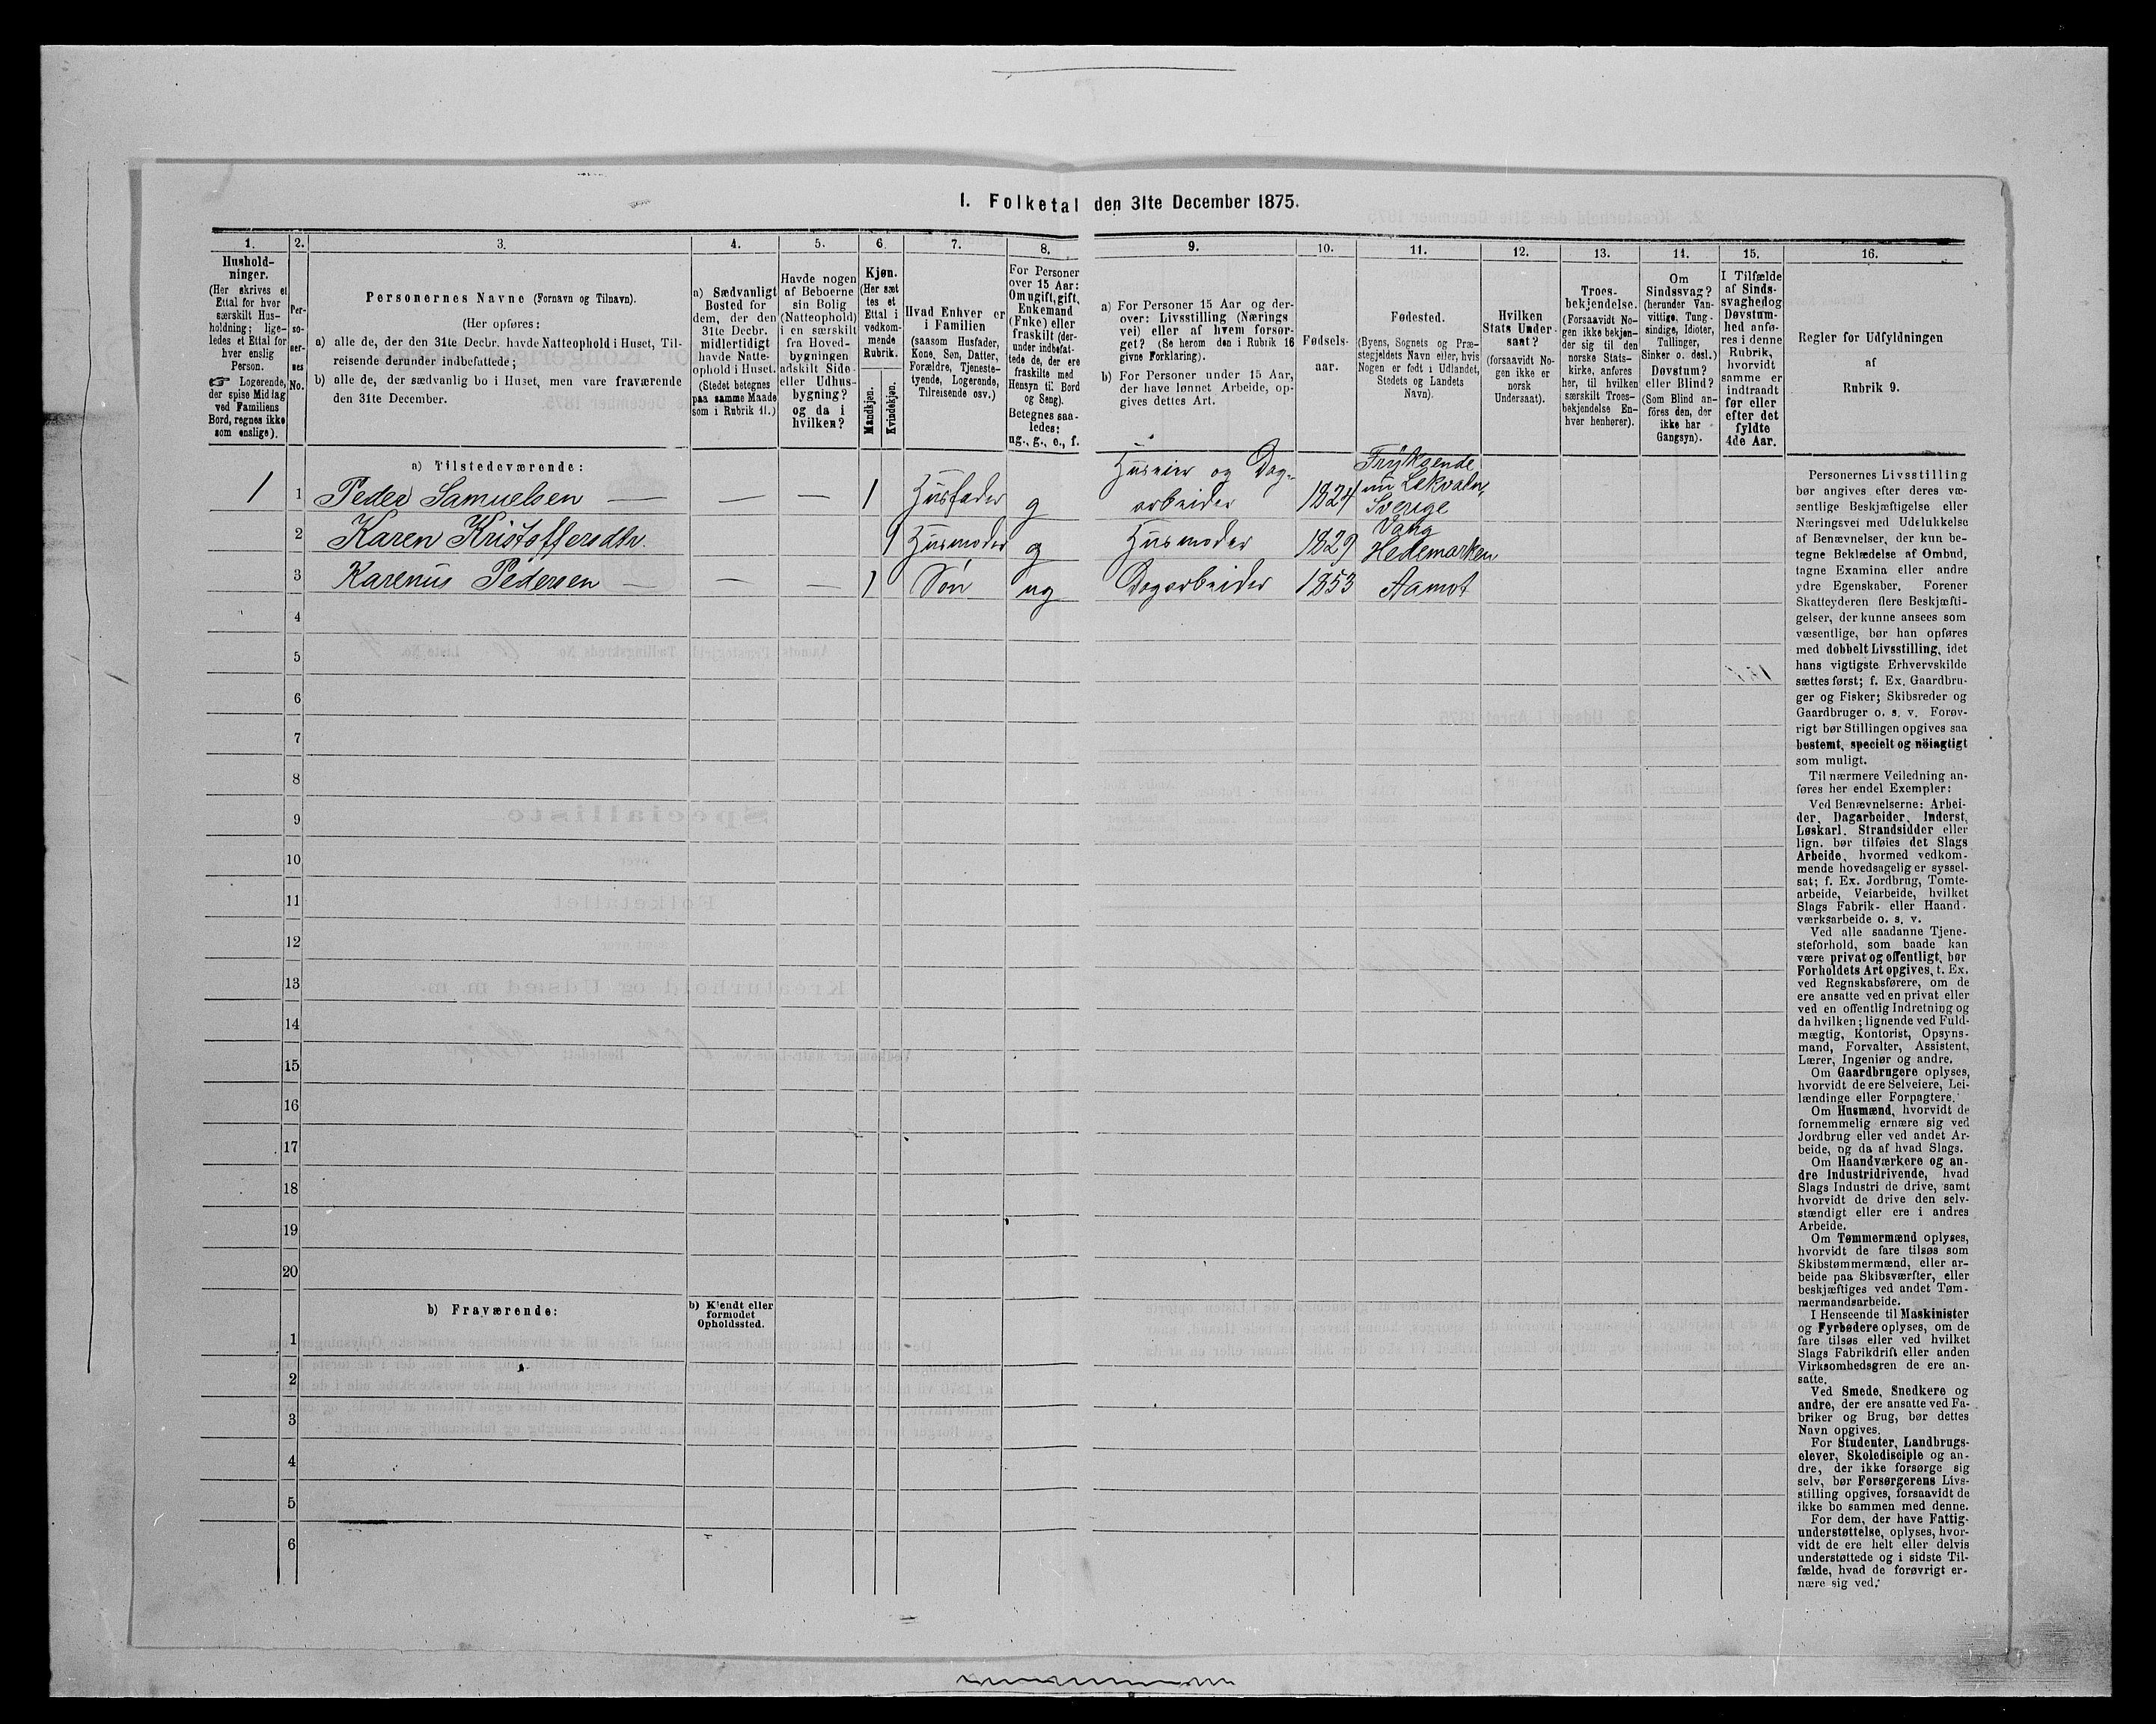 1. Folketal den 31te December 1875.
1.
Hushold-
ninger.
(Her skrives et
Ettal for hver
særskilt Hus-
holdning; lige-
ledes et Ettal for
hver enslig
Person.
☞ Logerende,
der spise Middag
ved Familiens
Bord, regnes ikke
som enslige).
2.
Per-
so-
ner-
nes
No.
3.
Personernes Navne (Fornavn og Tilnavn).
(Her opføres:
a) alle de, der den 31te Decbr. havde Natteophold i Huset, Til-
reisende derunder indbefattede;
b) alle de, der sædvanlig bo i Huset, men vare fraværende
den 31te December.
4.
a) Sædvanligt
Bosted for
dem, der den
31te Decbr.
midlertidigt
havde Natte-
ophold i Huset.
(Stedet betegnes
paa samme Maade
som i Rubrik 11.)
5.
Havde nogen
af Beboerne
sin Bolig
(Natteophold)
i en særskilt
fra Hoved-
bygningen
adskilt Side-
eller Udhus-
bygning?
og da i
hvilken?
6.
Kjøn.
(Her sæt
tes et
Ettal i
vedkom-
mende
Rubrik.
Mandkjøn.
Kvindekjøn.
7.
Hvad Enhver er
i Familien
(saasom Husfader,
Kone, Søn, Datter,
Forældre, Tjeneste-
tyende, Logerende,
Tilreisende osv.)
8.
For Personer
over 15 Aar:
Om ugift, gift,
Enkemand
(Enke) eller
fraskilt (der-
under indbefat-
tede de, der ere
fraskilte med
Hensyn til Bord
og Seng).
Betegnes saa-
ledes:
ug., g., e., f.
9.
a) For Personer 15 Aar og der-
over: Livsstilling (Nærings
vei) eller af hvem forsør-
get? (Se herom den i Rubrik 16
givne Forklaring).
b) For Personer under 15 Aar,
der have lønnet Arbeide, op-
gives dettes Art.
10.
Fødsels-
aar.
11.
Fødested.
(Byens, Sognets og Præ-
stegjeldets Navn eller, hvis
Nogen er født i Udlandet,
Stedets og Landets
Navn).
12.
Hvilken
Stats Under-
saat?
(forsaavidt No-
gen ikke er
norsk
Undersaat).
13.
Troes-
bekjendelse.
(Forsaavidt No-
gen ikke bekjen-
der sig til den
norske Stats-
kirke, anføres
her, til hvilken
særskilt Troes-
bekjendelse En-
hver henhører).
14.
Om
Sindssvag?
(herunder Van-
vittige, Tung-
sindige, Idioter,
Tullinger,
Sinker o. desl.)
Døvstum?
eller Blind?
(Som Blind an-
föres den, der
ikke har
Gangsyn).
15.
I Tilfælde
af Sinds-
svaghed og
Døvstum-
hed anfø-
res i denne
Rubrik,
hvorvidt
samme er
indtraadt
før eller
efter det
fyldte
4de Aar.
16.
Regler for Udfyldningen
af
Rubrik 9.
a) Tilstedeværende:
1 1 Peder Samuelsen — — — 1 Husfader g Huseier og Dag-
arbeider 1824 Fryksende
nu Lekvaln,
Sverige
2 Karen Kristoffersdtr. 1 Husmoder g Husmoder 1829 Vang
Hedemarken
3 Karenus Pedersen — — — 1 Søn ug Dagarbeider 1853 Aamot
4
5
6
7
8
9
10
11
12
13
14
15
16
17
18
19
20
b) Fraværende:
b) Kjendt eller
formodet
Opholdssted.
1
2
3
4
5
6
Personernes Livsstilling
bør angives efter deres væ-
sentlige Beskjæftigelse eller
Næringsvei med Udelukkelse
af Benævnelser, der kun be-
tegne Beklædelse af Ombud,
tagne Examina eller andre
ydre Egenskaber. Forener
Skatteyderen flere Beskjæfti-
gelser, der kunne ansees som
væsentlige, bør han opføres
med dobbelt Livsstilling, idet
hans vigtigste Erhvervskilde
sættes først; f. Ex. Gaardbru-
ger og Fisker; Skibsreder og
Gaardbruger o. s. v. Forøv-
rigt bør Stillingen opgives saa
bestemt, specielt og nöiagtigt
som muligt.
Til nærmere Veiledning an-
føres her endel Exempler:
Ved Benævnelserne: Arbei-
der, Dagarbeider, Inderst,
Løskarl, Strandsidder eller
lign. bør tilføies det Slags
Arbeide, hvormed vedkom-
mende hovedsagelig er syssel-
sat; f. Ex. Jordbrug, Tomte-
arbeide, Veiarbeide, hvilket
Slags Fabrik- eller Haand-
værksarbeide o. s. v.
Ved alle saadanne Tjene-
steforhold, som baade kan
være privat og offentligt, bør
Forholdets Art opgives, f. Ex.
ved Regnskabsførere, om de
ere ansatte ved en privat eller
ved en offentlig Indretning og
da hvilken; lignende ved Fuld-
mægtig, Kontorist, Opsyns-
mand, Forvalter, Assistent,
Lærer, Ingeniør og andre.
Om Gaardbrugere oplyses,
hvorvidt de ere Selveiere, Lei-
lændinge eller Forpagtere.
Om Husmænd, hvorvidt de
fornemmelig ernære sig ved
Jordbrug eller ved andet Ar-
beide, og da af hvad Slags.
Om Haandværkere og an-
dre Industridrivende, hvad
Slags Industri de drive, samt
hvorvidt de drive den selv-
stændigt eller ere i andres
Arbeide.
Om Tømmermænd oplyses,
hvorvidt de fare tilsøs som
Skibstømmermænd, eller ar-
beide paa Skibsværfter, eller
beskjæftiges ved andet Tøm-
mermandsarbeide.
I Henseende til Maskinister
og Fyrbødere oplyses, om de
fare tilsøs eller ved hvilket
Slags Fabrikdrift eller anden
Virksomhedsgren de ere an-
satte.
Ved Smede, Snedkere og
andre, der ere ansatte ved Fa-
briker og Brug, bør dettes
Navn opgives.
For Studenter, Landbrugs-
elever, Skoledisciple og an-
dre, der ikke forsørge sig
selv, bør Forsørgerens Livs-
stilling opgives, forsaavidt de
ikke bo sammen med denne.
For dem, der have Fattig-
understøttelse, oplyses, hvor-
vidt de ere helt eller delvis
understøttede og i sidste Til-
fælde, hvad de forøvrigt er-
nære sig ved.